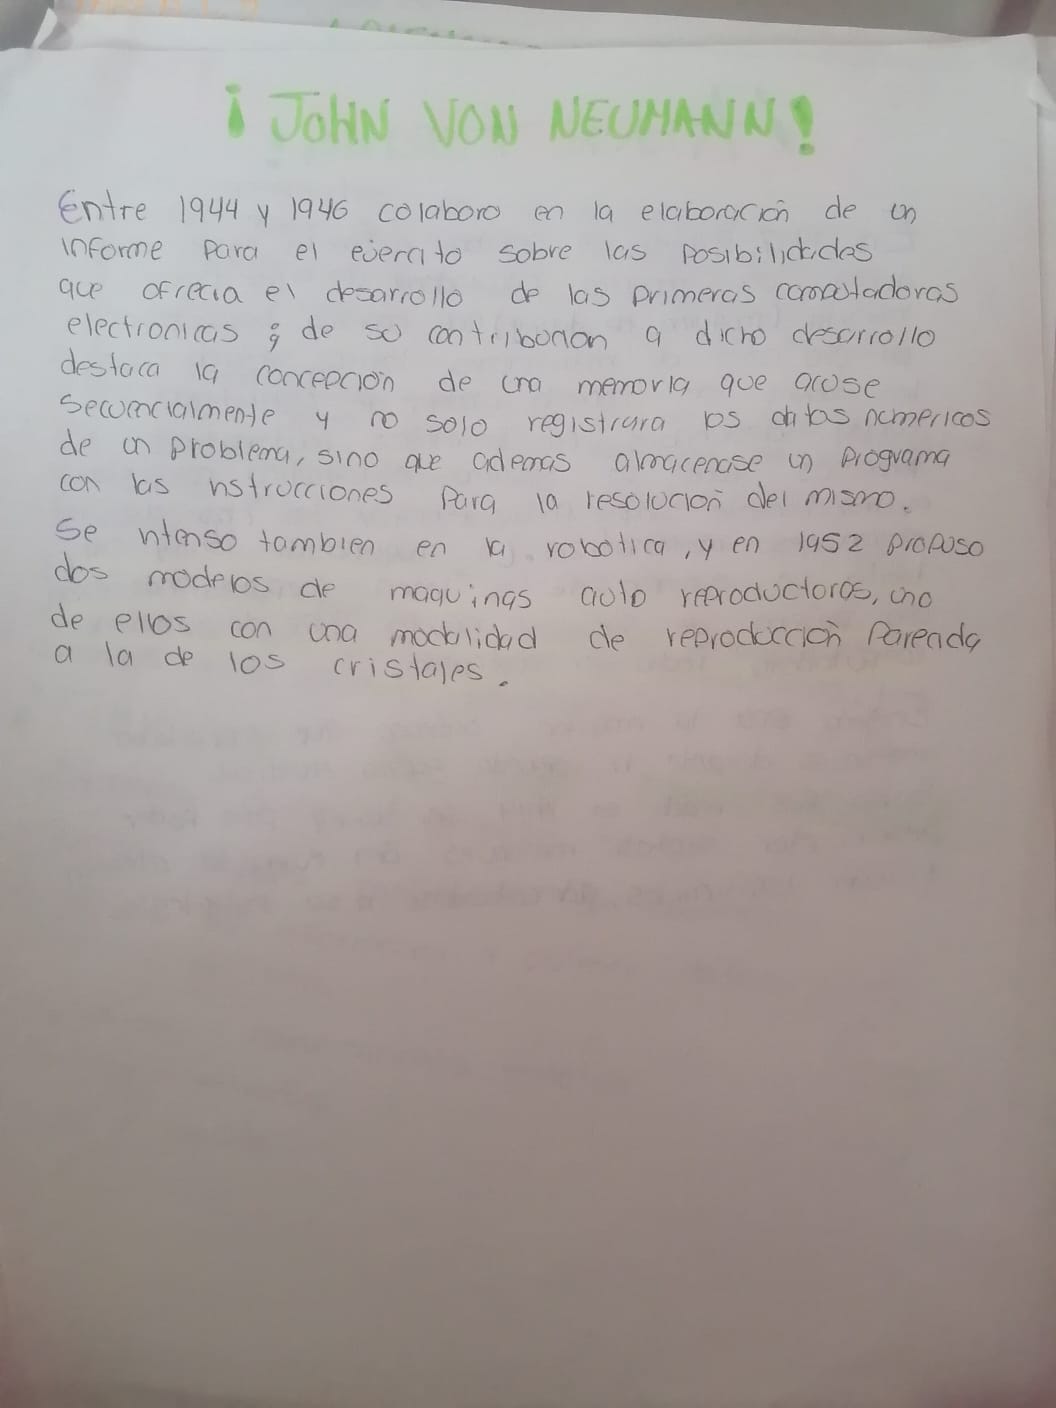 ¡JOHN VON NEUMANN!
Entre 1944 y 1946 colaboro en la elaboración de un
informe para el ejercito sobre las posibilidades
que ofrecia el desarrollo de las primeras computadoras
electronicas ; de su contribucion a dicho desarrollo
destaca la concepción de una memoria que acuse
secuencialmente y no solo registrara los datos numericos
de un problema, sino que ademas almacenase un programa
con las nstrucciones para la resolución del mismo.
Se tambien en la robotica, y en 1952 propuso
dos modelos de maquinas auto reproductoras, uno
de ellos con una modalidad de reproducción parecida
a la de los cristales.